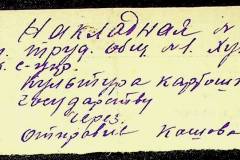 Накладная №
труд. общ №1.
Культура картош
государству
через
отправие Кашова